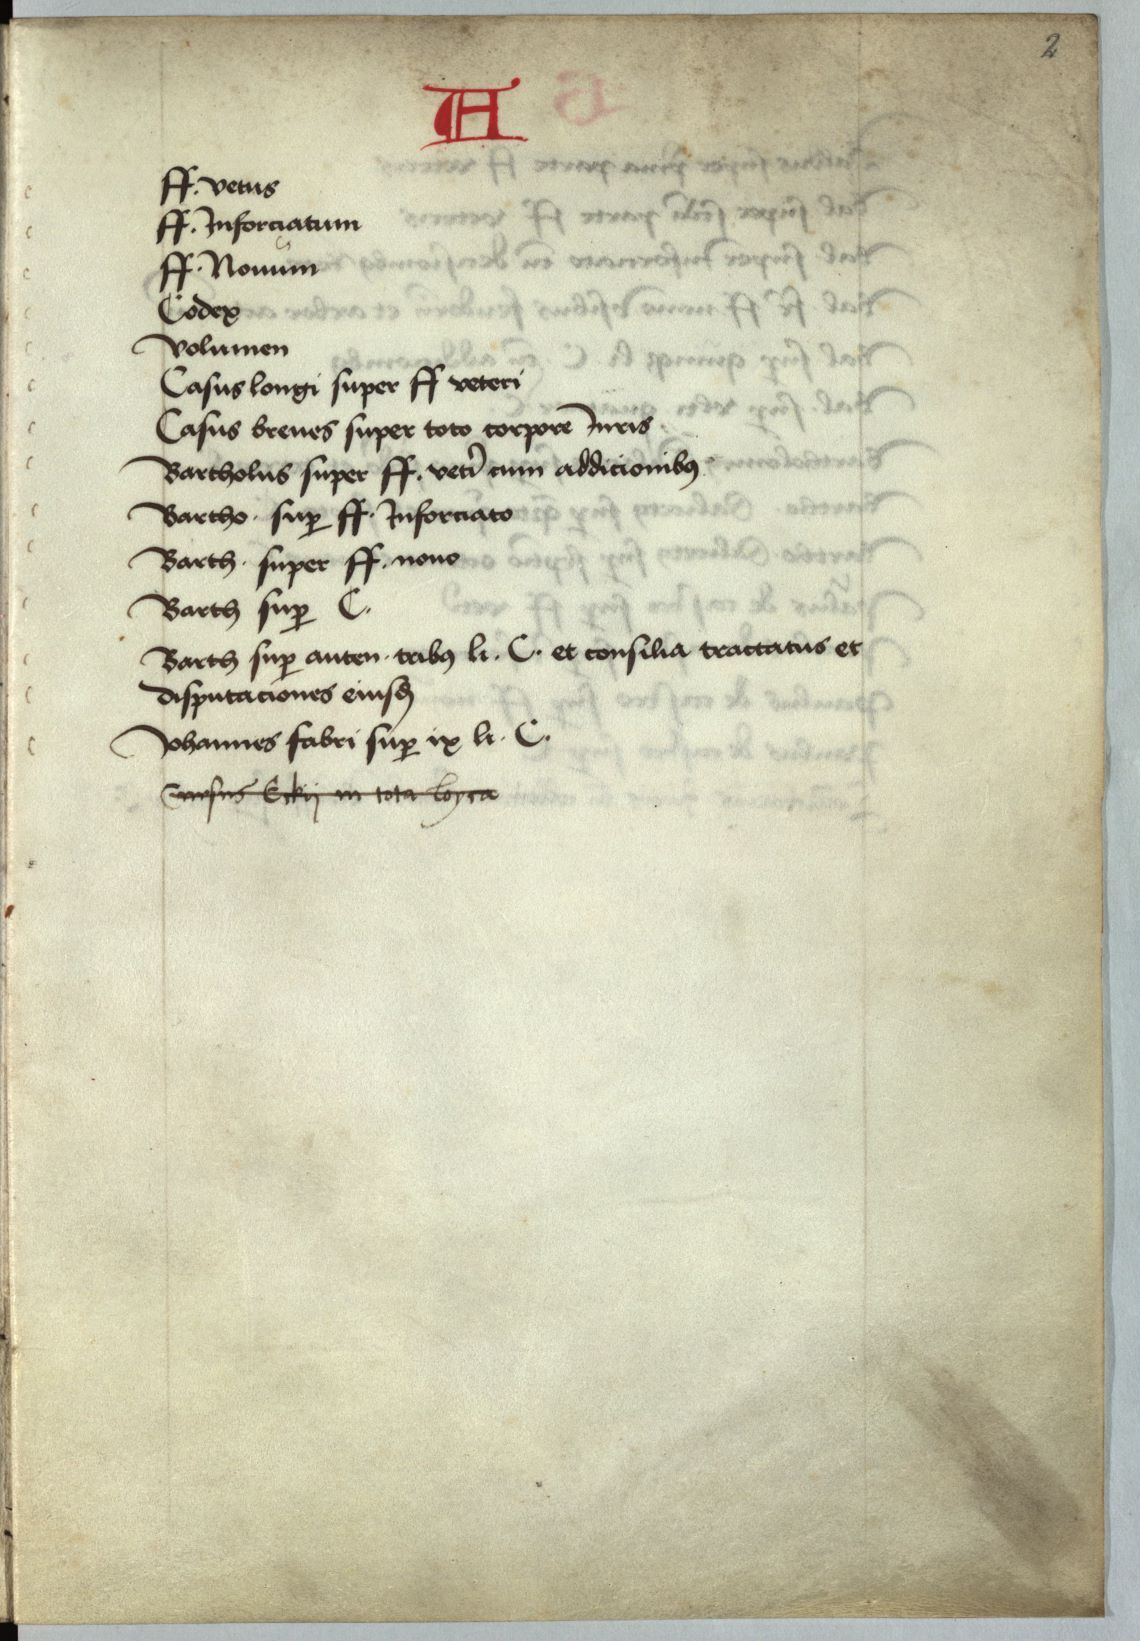 2
A
ff. vetus
ff. Inforciatum
ff. Nouum
Codex
Volumen
Casus longi super ff veteri
Casus breues super toto corpore Iuris
Bartholus super ff. veti cum addicionibꝰ
Bartho. suꝑ ff. Inforciato
Barth. super ff. nouo
Barth suꝑ C.
Barth suꝑ auten. tribꝰ li. C. et consilia tractatus et
disputaciones eiusd
Johannes fabri suꝑ ix li. C.
Cursus Eckij in tota loyca